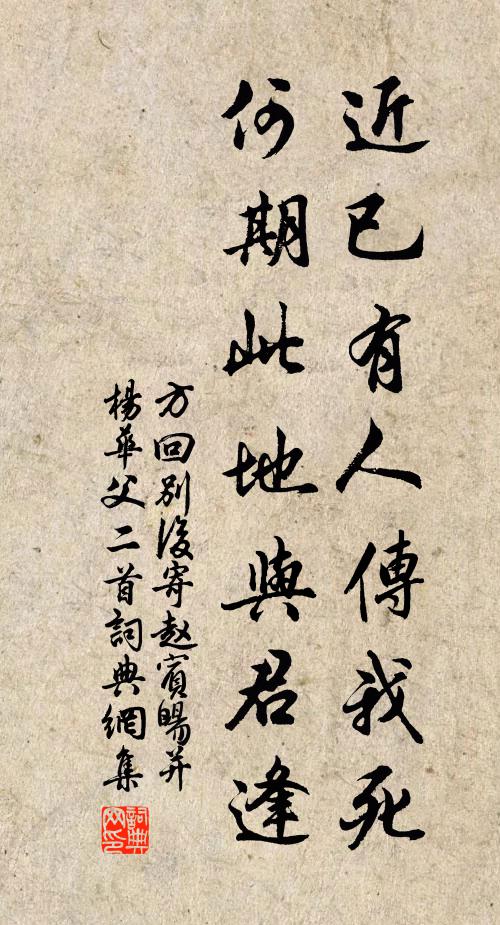 近已有人傳我死
何期此地與君逢
方回別後寄赵賓暘并
楊華父二首詞典網集
詞典
网印